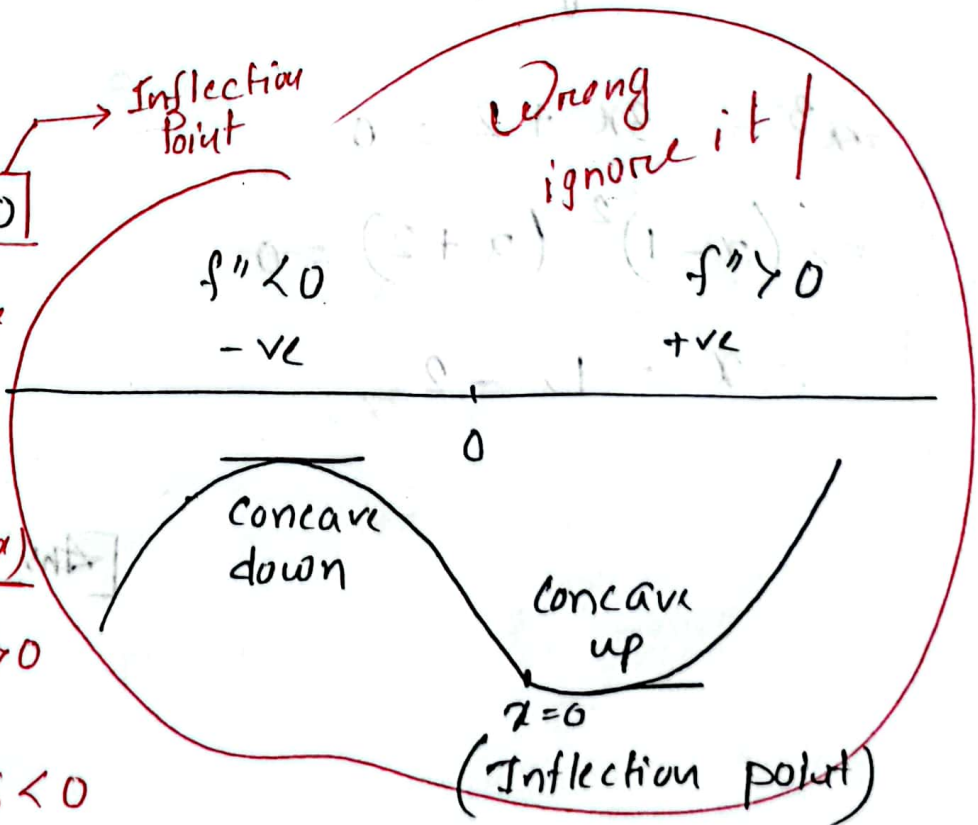 Inflection
Point
Wrong
ignore it!
0
f" < 0
- ve
f" > 0
+ve
0
Concave
down
Concave
up
x = 0
(Inflection point)
x)
> 0
< 0